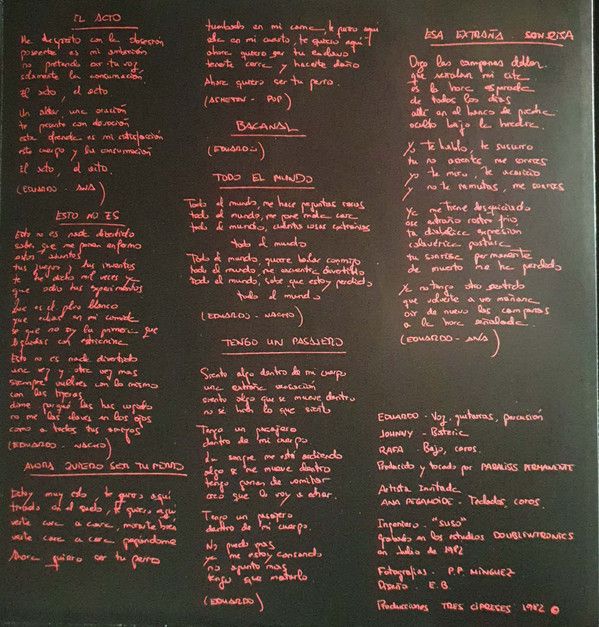 EL ACTO
Me despierto con la obsesión
poseerte es mi ambición
no pretendo oir tu voz
solamente la consumación.
El acto, el acto
Un altar, una oración
te presento con devoción
esta ofrenda es mi satisfacción
este cuerpo y la consumación
El acto, el acto.
(EDUARDO - ANA)
ESTO NO ES
Esto no es nada divertido
sabes que me ponen enfermo
estos asuntos
tus juegos y tus inventos
te he dicho mil veces ya
que odio tus experimentos
que es el polvo blanco
que echas en mi comida
se que no soy la primera que
liquidas con estricnina
Esto no es nada divertido
una vez y otra vez mas
siempre vuelves con lo mismo
con las tijeras
dime porqué las has cogido
no me las claves en los ojos
como a todos tus amigos
(EDUARDO - NACHO)
AHORA QUIERO SER TU PERRO
Estoy muy solo, te quiero aqui
tirado en el suelo, te quiero aqui
verte cara a cara, morirte
verte cara a cara pegándome
Ahora quiero ser tu perro
tumbado en mi cama, te quiero aqui
alla en mi cuarto, te quiero aqui
ahora quiero ser tu esclavo
tenerte cerca y hacerte daño
Ahora quiero ser tu perro.
(ASHETON - POP)
BACANAL
(EDUARDO)
TODO EL MUNDO
Todo el mundo, me hace preguntas raras
todo el mundo, me pone mala cara
todo el mundo, cuenta cosas extrañas
todo el mundo
Todo el mundo, quiere bailar conmigo
todo el mundo, me encuentra divertido
todo el mundo, sabe que estoy perdido
todo el mundo
(EDUARDO - NACHO)
TENGO UN PASAJERO
Siento algo dentro de mi cuerpo
una extraña sensación
siento algo que se mueve dentro
no sé bien lo que siento
Tengo un pasajero
dentro de mi cuerpo
la sangre me está ardiendo
algo se me mueve dentro
tengo ganas de vomitar
creo que lo voy a echar.
Tengo un pasajero
dentro de mi cuerpo.
No puedo mas
ya me estoy cansando
no aguanto mas
tengo que matarlo
(EDUARDO)
ESA EXTRAÑA SONRISA
Oigo las campanas doblar
que señalan mi cita
es la hora esperada
de todos los dias
alli en el banco de piedra
oculto bajo la hiedra.
Yo te hablo, te susurro
tu no asientes, me sonries
yo te miro, te acaricio
y no te inmutas, me sonries
Ya me tiene desquiciado
ese extraño rostro frio
tu diabólica expresión
calavérica postura
tu sonrisa permanente
de muerto me ha perdido
Ya no tengo otro sentido
que volverte a ver mañana
oir de nuevo las campanas
a la hora señalada.
(EDUARDO - ANA)
EDUARDO - Voz, guitarras, percusión
JOHNNY - Bateria
RAFA - Bajo, coros.
Producido y tocado por PARALISIS PERMANENTE
Artista Invitada
ANA PEGAMOIDE - Teclados, coros.
Ingeniero - "SUSO"
grabado en los estudios DOUBLEWTRONICS
en Julio de 1982
Fotografias - P.P. MINGUEZ
Diseño - E.B.
Producciones TRES CIPRESES 1982 ©